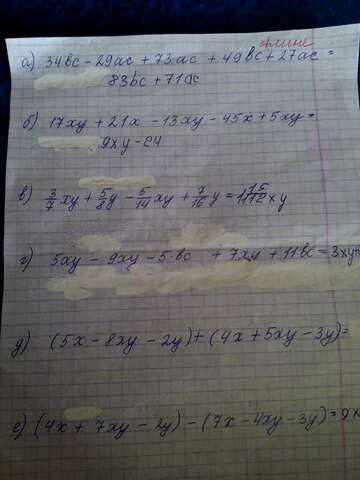 а) 34bc - 29ac + 73ac + 49bc + 27ac =
83bc + 71ac
б) 17xy + 21x - 13xy - 45x + 5xy =
9xy - 24
в) 3/7 xy + 5/8 y - 5/14 xy + 7/16 y =
г) 5xy - 9xy - 5·bc + 7xy + 11bc = 3xy+
д) (5x - 8xy - 2y) + (4x + 5xy - 3y) =
е) (4x + 7xy - 2y) - (7x - 4xy - 3y) = 9x